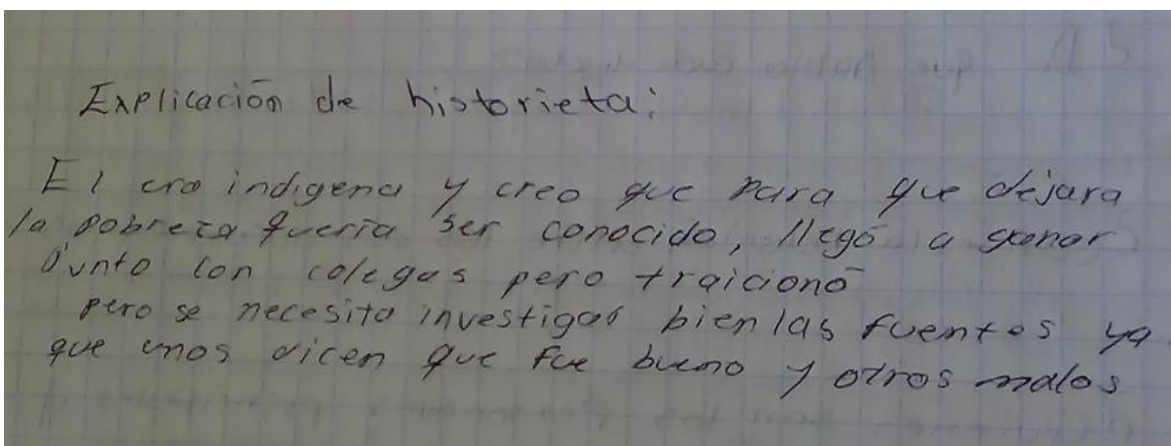 Explicación de historieta:
El era indigena y creo que para que dejara
la pobreza queria ser conocido, llegó a ganar
junto con colegas pero traicionó
pero se necesita investigar bien las fuentes ya
que unos dicen que fue bueno y otros malos